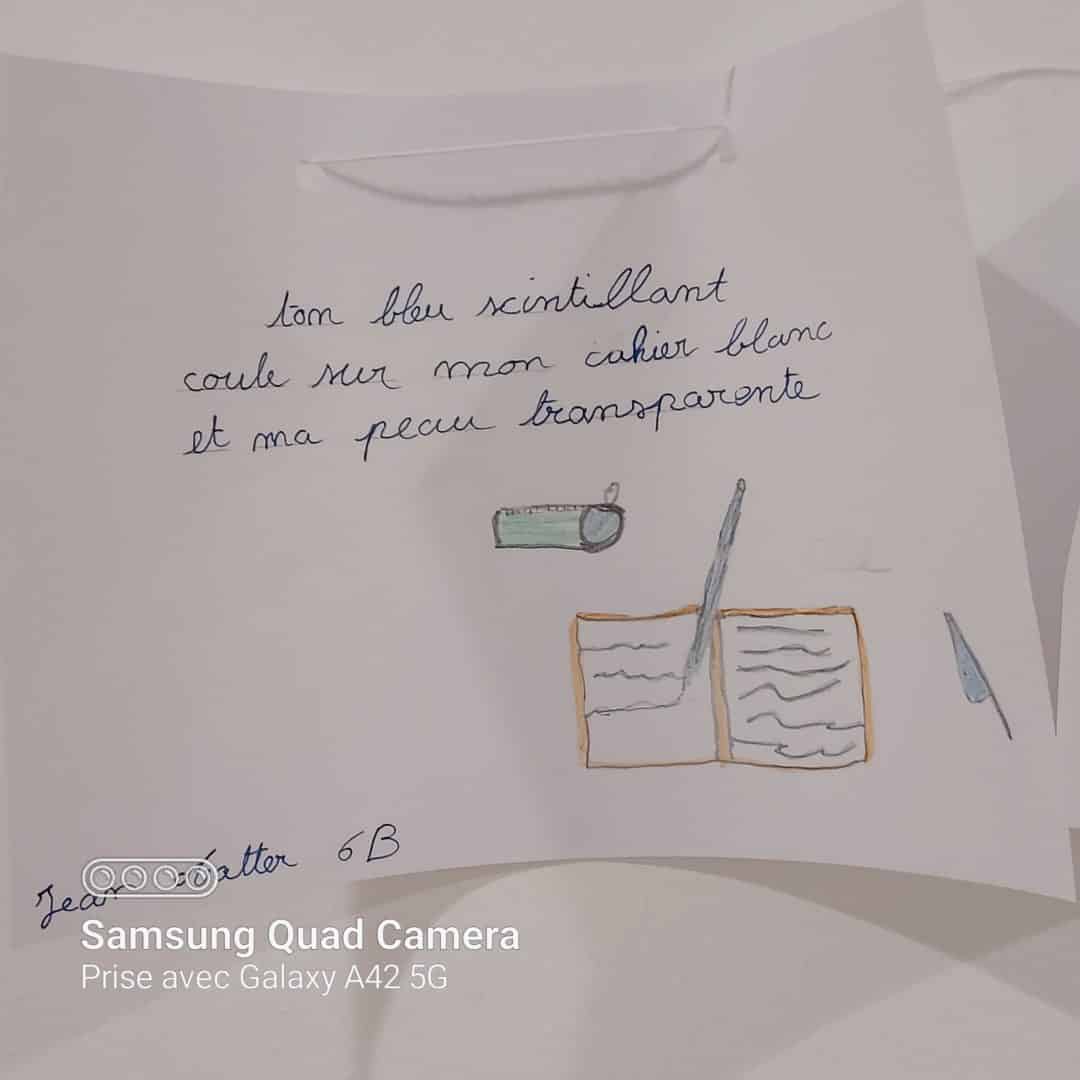 ton bleu scintillant
coule sur mon cahier blanc
et ma peau transparente
Jean 6B
Samsung Quad Camera
Prise avec Galaxy A42 5G